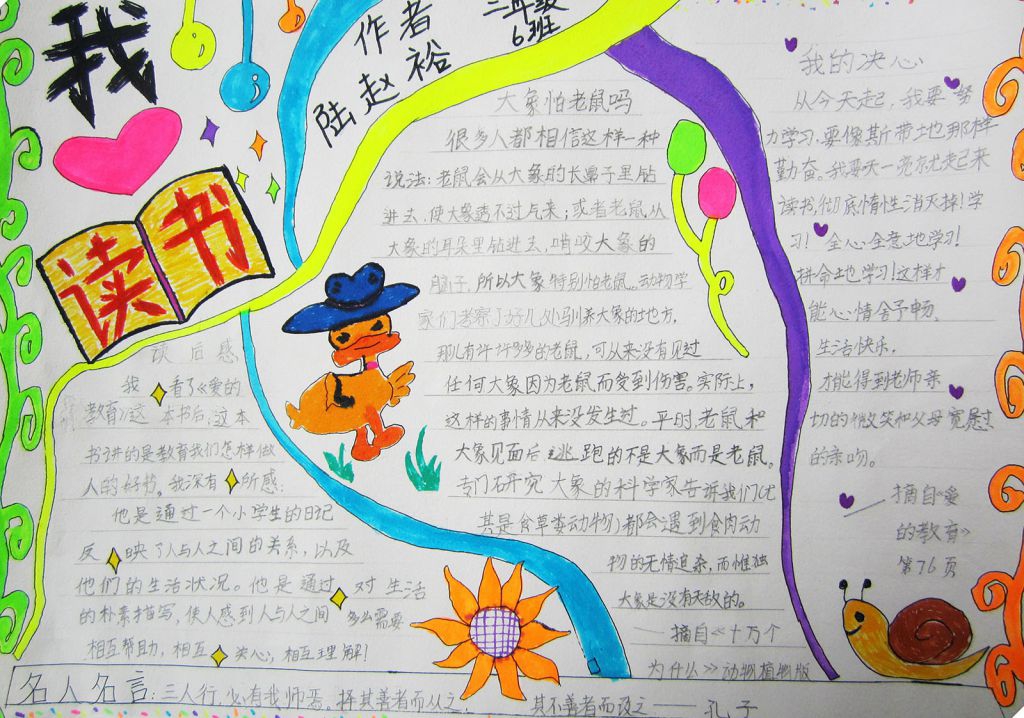 我
读书
作者
陆赵裕
三年级
6班
读后感
我看了《爱的
教育》这本书后,这本
书讲的是教育我们怎样做
人的好书。我深有所感:
他是通过一个小学生的日记
反映了人与人之间的关系,以及
他们的生活状况。他是通过对生活
的朴素描写,使人感到人与人之间多么需要
相互帮助,相互关心,相互理解!
大象怕老鼠吗
很多人都相信这样一种
说法:老鼠会从大象的长鼻子里钻
进去,使大象透不过气来;或者老鼠从
大象的耳朵里钻进去,啃咬大象的
脑子,所以大象特别怕老鼠。动物学
家们考察了好几处驯养大象的地方,
那儿有许许多多的老鼠,可从来没有见过
任何大象因为老鼠而受到伤害。实际上,
这样的事情从来没发生过。平时,老鼠和
大象见面后逃跑的不是大象而是老鼠。
专门研究大象的科学家告诉我们(尤
其是食草类动物)都会遇到食肉动
物的无情追杀,而惟独
大象是没有天敌的。
——摘自《十万个
为什么》动物植物版
我的决心
从今天起,我要努
力学习,要像斯带地那样
勤奋。我要天一亮就起来
读书,彻底惰性消灭掉!学
习!全心全意地学习!
拼命地学习!这样才
能心情舍予畅、
生活快乐,
才能得到老师亲
切的微笑和父母宽慰
的亲吻。
——摘自《爱
的教育》
第76页
名人名言:三人行,必有我师焉。择其善者而从之,其不善者而改之——孔子